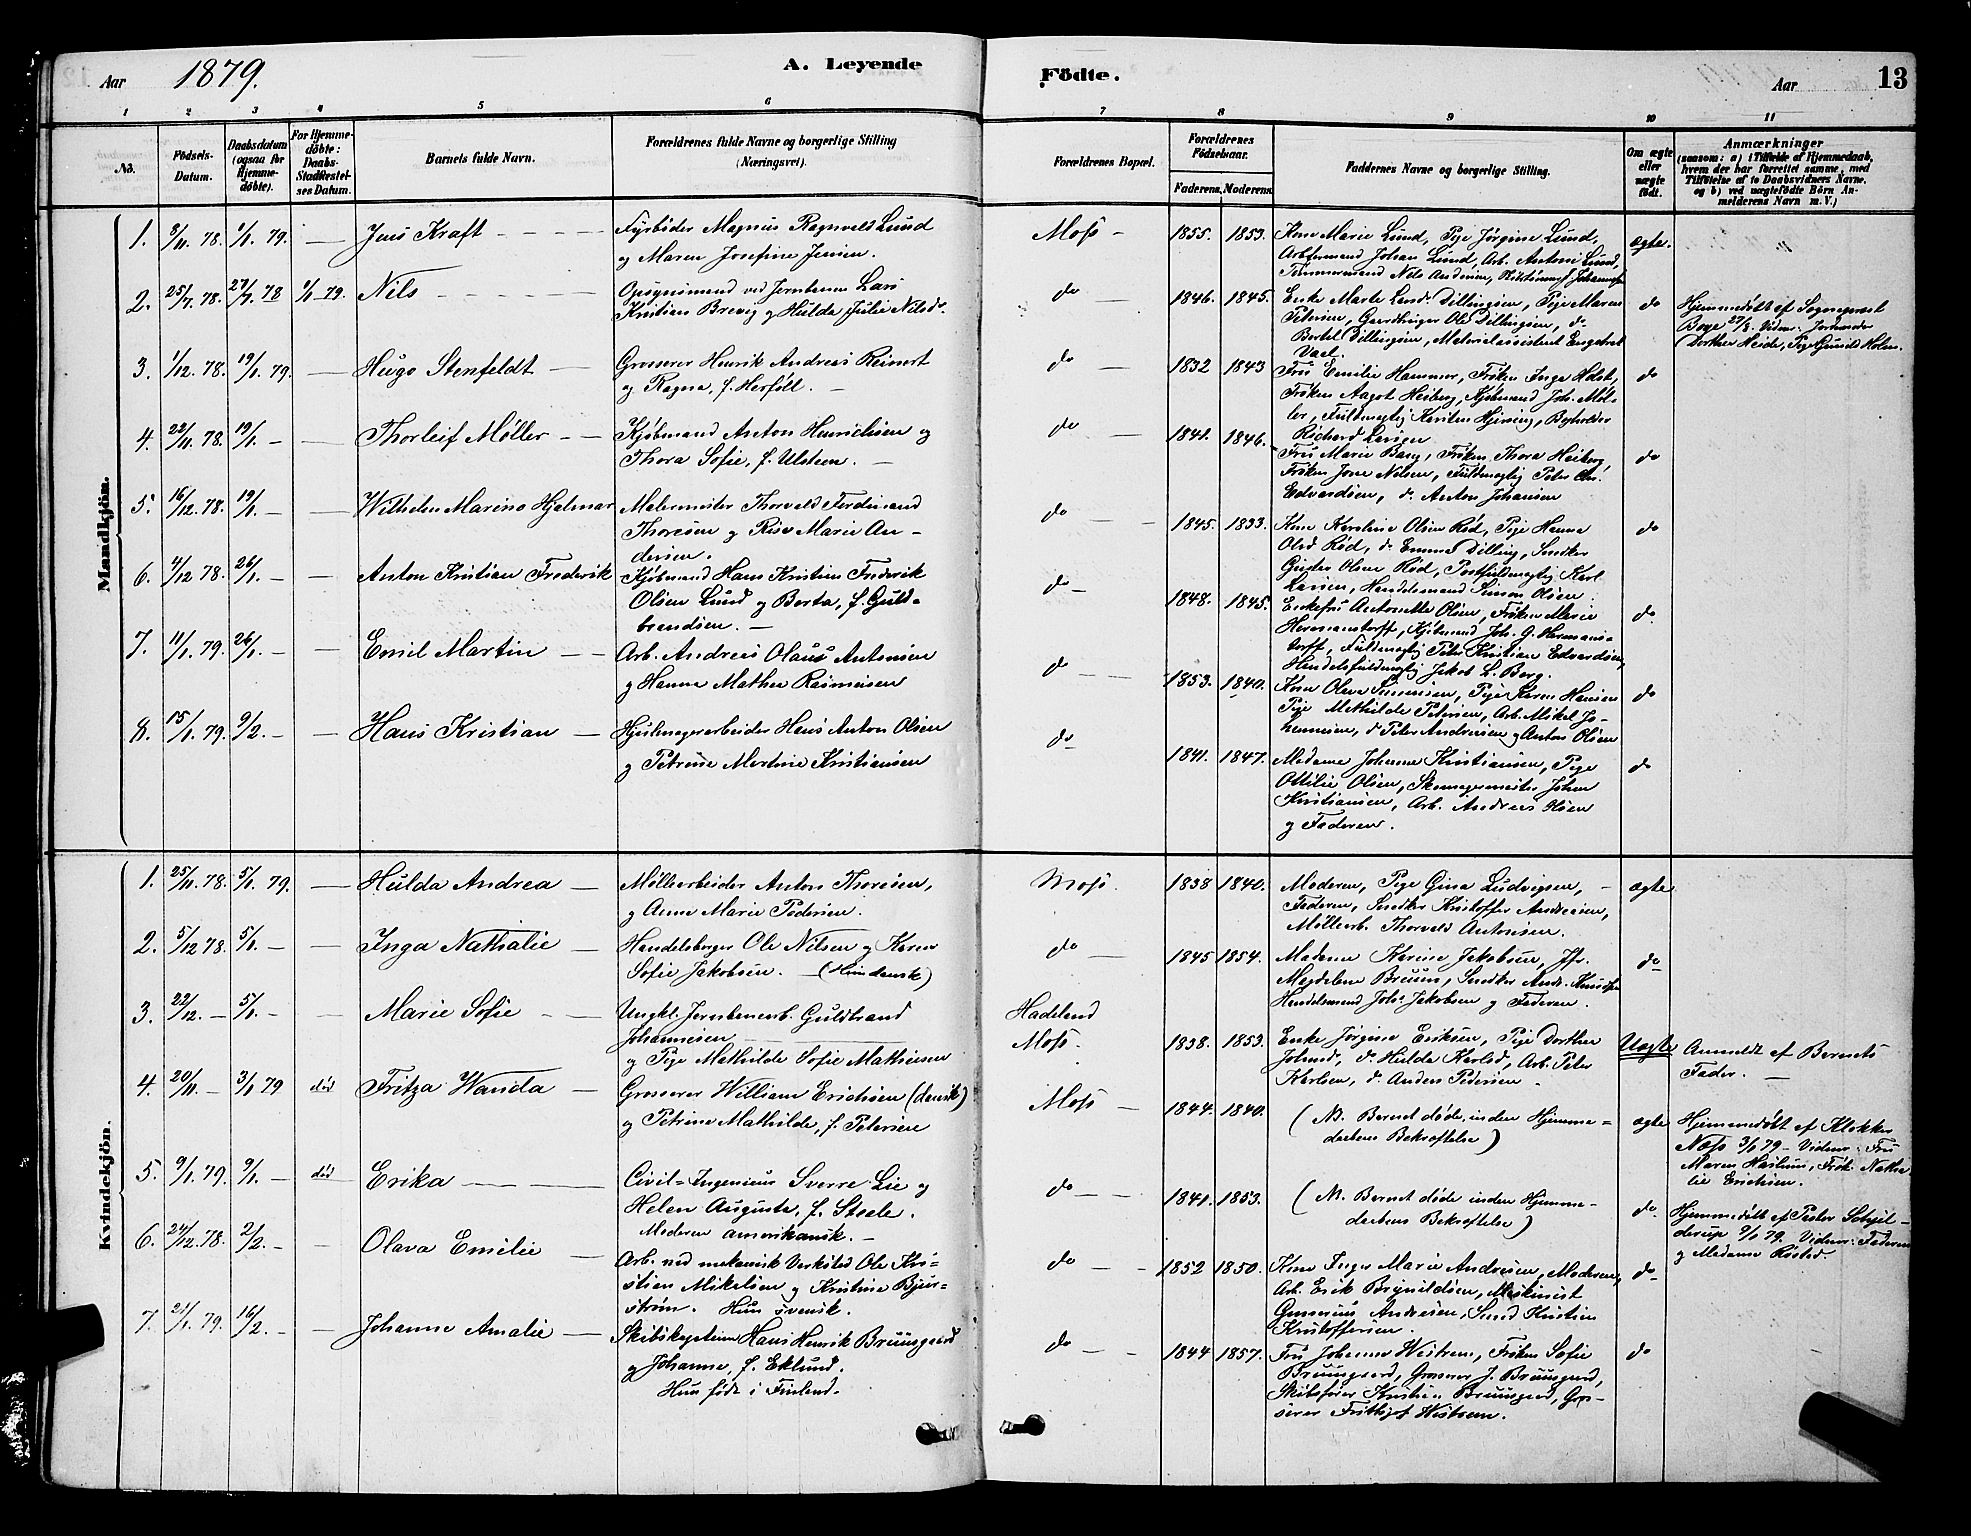 Aar 1879. A. Levende Födte. Aar 13
1 2 3 4 5 6 7 8 9 10 11
No.
Födsels-Datum.
Daabsdatum (ogsaa for Hjemmedöbte).
For Hjemmedöbte: Daabs-Stadfæstelses Datum.
Barnets fulde Navn.
Forældrenes fulde Navne og borgerlige Stilling (Næringsvei).
Forældrenes Bopæl.
Forældrenes Födselsaar.
Faderens. Moderens.
Faddernes Navne og borgerlige Stilling.
Om ægte eller uægte födt.
Anmærkninger
(saasom: a) i Tilfælde af Hjemmedaab, hvem der har forrettet samme, med Tilföielse af to Daabsvidners Navne, og b) ved uægtefödte Börn Anmelderens Navn m. V.)
Mandkjön.
1. 8/11 78. 1/1 79. — Jens Kraft - - - - -
Fyrbøder Magnus Ragnvald Lund
og Maren Josefine Jensen.
Moss - 1855. 1853.
Kone Marie Lund, Pige Jørgine Lund,
Arbeidsmand Johan Lund, Arb. Antoni Lund,
Tømmermand Nils Andersen,
ægte.
2. 25/7 78. 27/7 78 1/1 79. Nils - - - -
Opsynsmand ved Jernbanen Lars
Kristian Brevig og Hulda Julie Nilsd.
do — 1846. 1845.
Enke Marte Lund Dillingøen, Pige Maren
Petersen, Gaardbruger Ole Dillingøen, do
Bertel Dillingøen, Materialassistent Engebret
Vael.
do
Hjemmedøbt af Sogneprest
Boye 27/7. Vidner: Jordmoder
Dorthea Heide, Pige Gunild Holm.
3. 1/12. 78. 19/1 79. — Hugo Stenfeldt —
Grosserer Henrik Andreas Reinert
og Ragna, f. Herføll. —
do — 1832 1843
Fru Emilie Hammer, Frøken Inga Holst,
Frøken Aagot Heiberg, Kjøbmand Joh. Møl-
ler, Fuldmægtig Karsten Hjersing, Bogholder
Richard Larsen
do
4. 22/11. 78. 19/1 - — Thorleif Møller - —
Kjøbmand Anton Henrichsen og
Thora Sofie, f. Ulsteen. —
do — 1841. 1846.
Fru Marie Bang, Frøken Thora Heiberg,
Frøken Jone Nilsen, Fuldmægtig Peter Chr.
Edvardsen, do Anton Johansen
do
5. 16/12. 78. 19/1. - — Wilhelm Marino Hjalmar
Malermester Thorvald Ferdinand
Thoresen og Risø Marie An-
dersen.
do — — 1845. 1833.
Kone Karoline Olsen Rød, Pige Hanna
Olsd. Rød, do Emma Dilling, Snedker
Olsen Rød, Postfuldmægtig Karl
Larsen, Handelsmand Simon Olsen.
do
6. 4/12 78. 26/1. - - Anton Kristian Frederik
Kjøbmand Hans Kristian Frederik
Olsen Lund og Berta, f. Guld-
brandsen. —
do— 1848. 1845.
Enkefru Antonette Olsen, Frøken Marie
Hermanstorff, Kjøbmand Joh. G. Hermans-
torff, Fuldmægtig Peter Kristian Edvardsen,
Handelsfuldmægtig Jakob L. Berg.
do
7. 11/1. 79. 26/1. - - Emil Martin - —
Arb. Andreas Olaus Antonsen
og Hanna Mathea Rasmussen
do — — 1853. 1840.
Kone Olava Simensen, Pige Karen Hansen
Pige Mathilde Petersen, Arb. Mikal Jo-
hannesen, do Peter Andresen og Anton Olsen
do
8. 15/1. 79. 9/2. - — Hans Kristian —
Hjulmagerarbeider Hans Anton Olsen
og Petrine Martine Kristiansen
do- 1841. 1847.
Madame Johanne Kristiansen, Pige
Ottilie Olsen, Skomagermester Johan
Kristiansen, Arb. Andreas Olsen
og Faderen.
do
Kvindekjön.
1. 25/11. 78. 5/1. 79. — Hulda Andrea —
Møllearbeider Anton Thoresen,
og Anne Marie Pedersen.
Moss. 1838 1840.
Moderen, Pige Gina Ludvigsen, -
Faderen, Snedker Kristoffer Andresen,
Møllearb. Thorvald Antonsen.
ægte
2. 5/12 78. 5/1. - — Inga Nathalie —
Handelsborger Ole Nilsen og Karen
Sofie Jakobsen. — (Hun dansk)
do — 1845 1854.
Madame Karine Jakobsen, Jfr.
Magdalene Bruun, Snedker And. Knudsen
Handelsmand Johs. Jakobsen og Faderen.
do
3. 22/12. - 5/1. - — Marie Sofie - —
Ungkl. Jernbanearb. Guldbrand
Johannesen
og Pige Mathilde Sofie Mathiesen
Hadeland
Moss. 1838. 1853.
Enke Jørgine Eriksen, Pige Dorthea
Johnsd., do Hulda Karlsd., Arb. Peter
Karlsen, do Anders Pedersen -
Uægte
Anmeldt af Barnets
Fader. —
4. 20/11. - 3/1 79 død Fritza Wanda —
Grosserer William Erichsen (dansk)
og Petrine Mathilde, f. Petersen
Moss — 1844. 1840.
(NB. Barnet døde inden Hjemme-
daabens Bekræftelse)
ægte
Hjemmedøbt af Klokker
Næss 3/1 79 - Vidner: Fru
Maren Haslum, Frøk. Natha-
lie Erichsen.
5. 9/1. 79. 9/1. - død Erika — - —
Civil-Ingeniør Sverre Lie og
Helen Augusta, f. Steele.
Moderen amerikansk. —
do — - 1841. 1853.
(NB. Barnet døde inden Hjemme-
daabens Bekræftelse)
do.
Hjemmedøbt af Pastor
9/1 79. Vidner: Faderen
og Madame Røsted.
6. 24/12. 78. 2/2. - — Olava Emilie —
Arb. ved mekanisk Verksted Ole Kri-
stian Mikelsen og Kristine Bjur-
strøm. Hun svensk.
do — - 1852 1850.
Kone Inger Marie Andresen, Moderen,
Arb. Erik Brynildsen, Maskinist
Andresen, Smed Kristian
Kristoffersen.
do-
7. 21/1. 79. 16/2. - — Johanne Amalie —
Skibskaptein Hans Henrik Bruusgaard
og Johanne, f. Eklund.
Hun født i Finland.
do — - 1844 1857.
Fru Johanne Westrem, Frøken Sofie
Bruusgaard, Grosserer J. Bruusgaard,
Skibsfører Kristian Bruusgaard, Gros-
serer Frithjof Westrem.
do